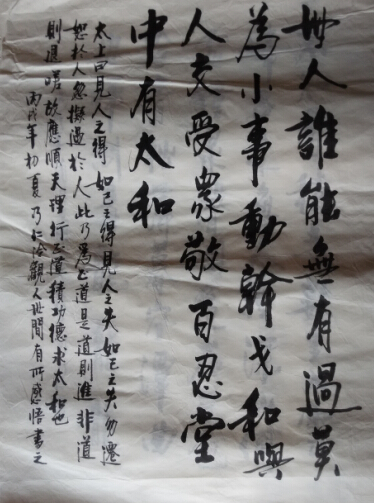 世人誰能無有過莫
為小事動幹戈和與
人交受眾敬百忍堂
中有太和
太上曰見人之得如己之得見人之失如己之失勿遷
怒於人忽擬過於人此乃為正道是道則進非道
則退故應順天理行正道積功德求太和也
丙戌年初夏乃仁觀人世間有所感悟書之